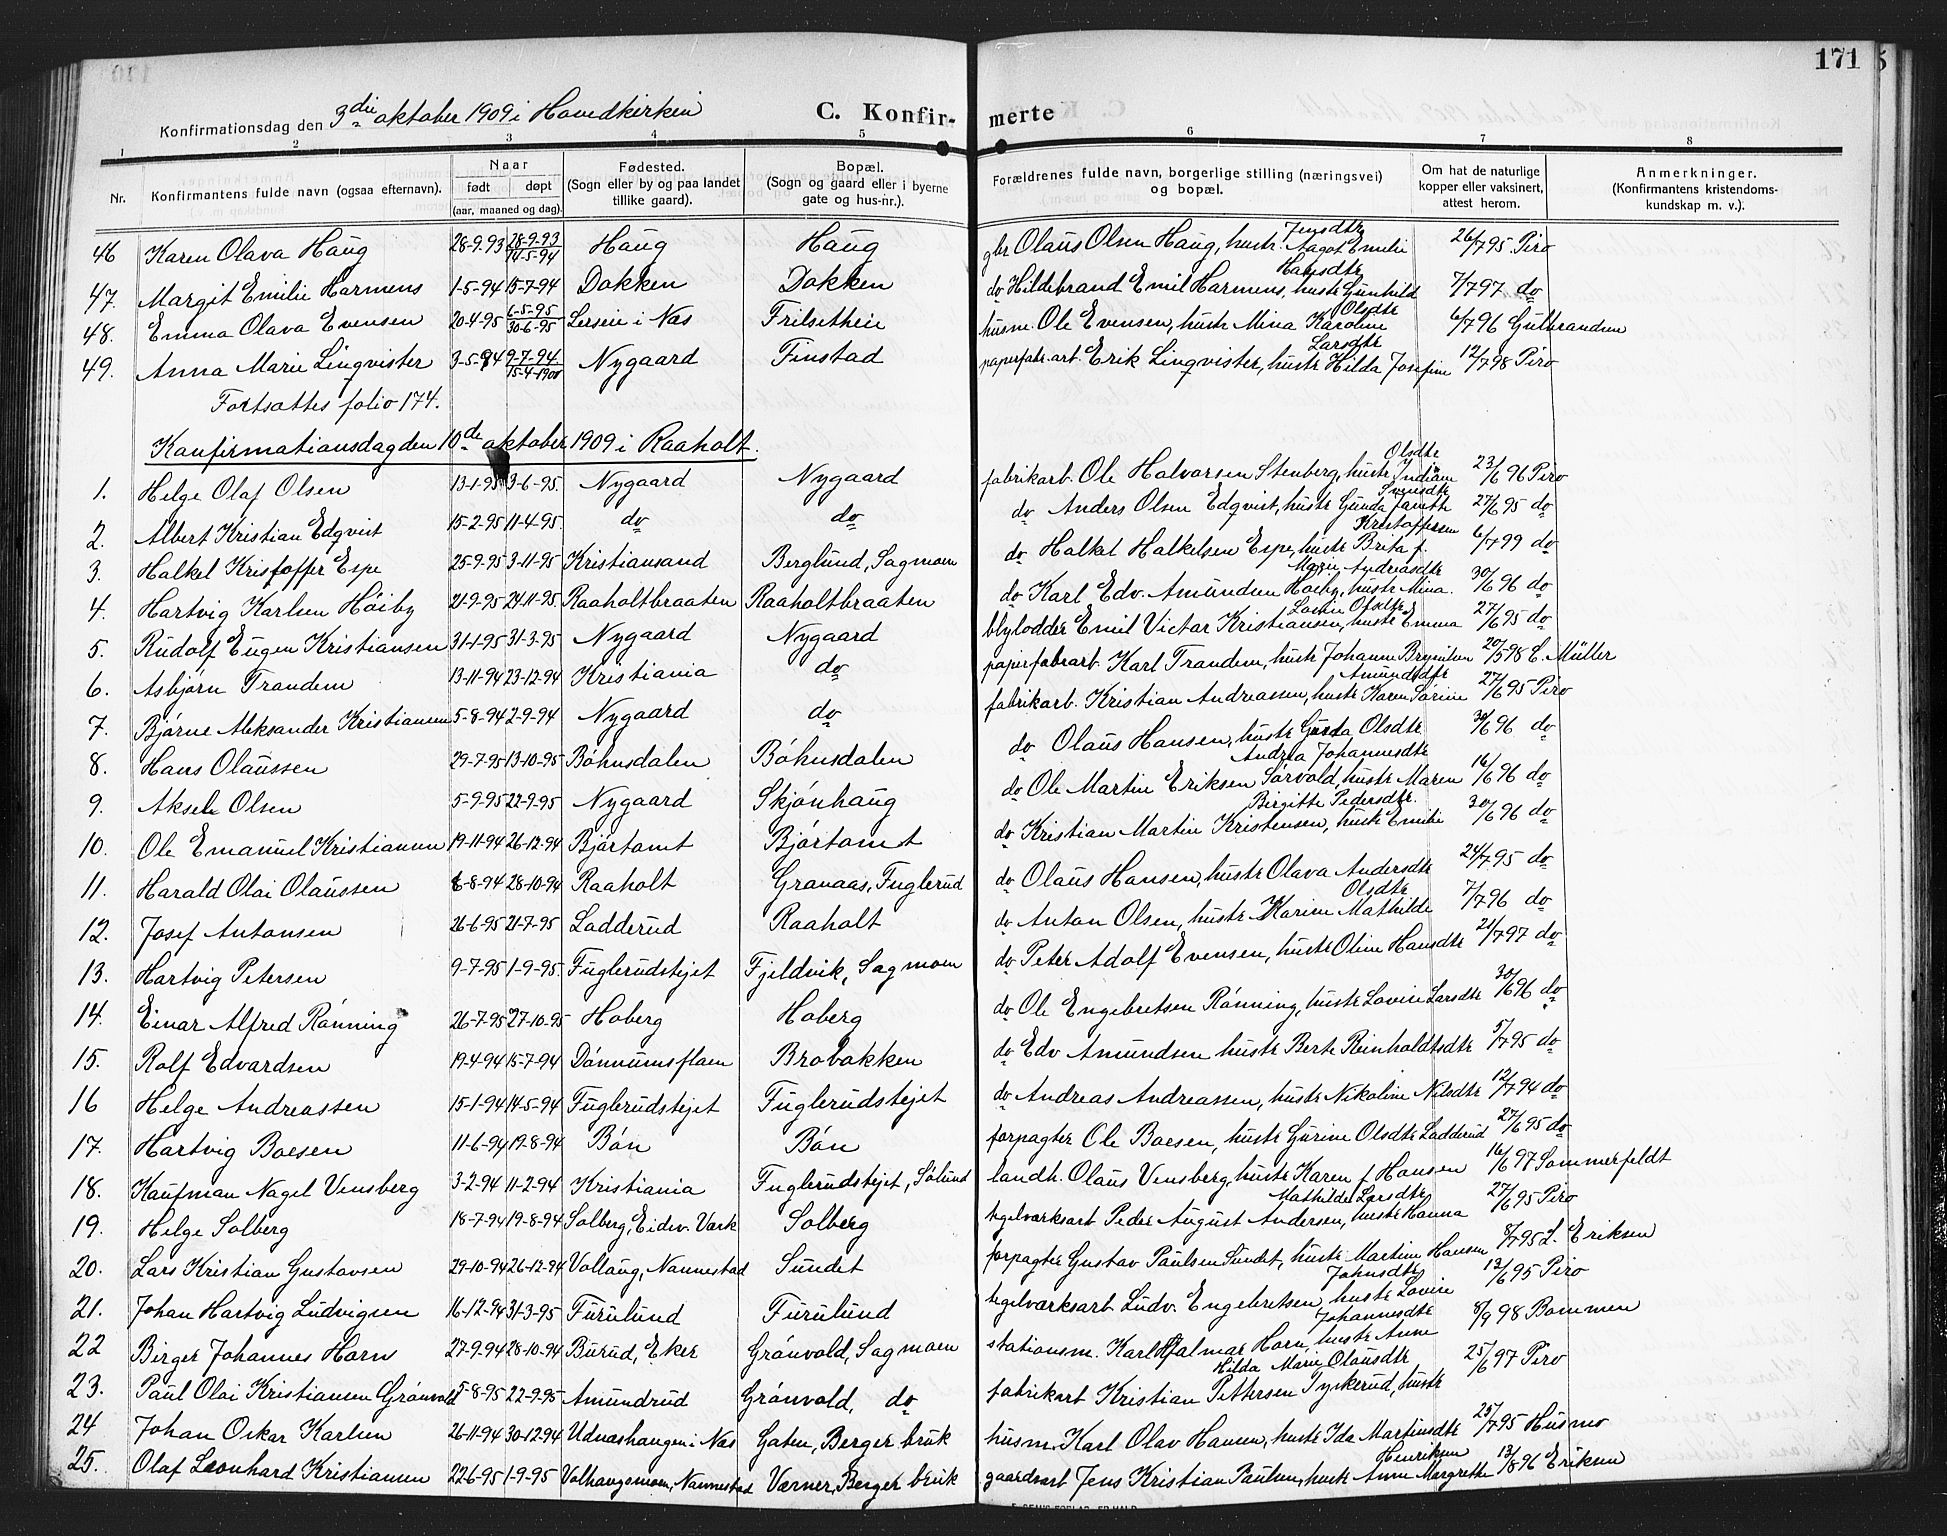 171
Konfirmationsdag den 3die oktober 1909 i Hovedkirken C. Konfir- merte
1 2 3 4 5 6 7 8
Nr. Konfirmantens fulde navn (ogsaa efternavn). Naar født døpt (aar, maaned og dag). Fødested. (Sogn eller by og paa landet tillike gaard). Bopæl. (Sogn og gaard eller i byerne gate og hus-nr.). Forældrenes fulde navn, borgerlige stilling (næringsvei) og bopæl. Om hat de naturlige kopper eller vaksinert, attest herom. Anmerkninger. (Konfirmantens kristendoms- kundskap m. v.).
46 Karen Olava Haug 28-9-93 28-9-93 14-5-94 Haug Haug gbr Olaus Olsen Haug, hustr. Aaget Emilie Jensdtr 26/7 95 Piro
47. Margit Emilie Harmens 1-5-94 15-7-94 Dokken Dokken do Hildebrand Emil Harmens, hustr Gunhild Hansdtr 7/7 97 do
48. Emma Olava Evensen 20-4-95 6-5-95 30-6-95 Lerseie i Næs Frilsetheie husm. Ole Evensen, hustr Mina Karoline Olsdtr 6/7 96 Gulbrandsen
49. Anna Marie Linqvister 3-5-94 9-7-94 15-4-1900 Nygaard Finstad paperfabr.arb. Erik Linqvister, hustr Hilda Josefine Larsdtr 12/7 98 Piro
Fortsættes folio 174.
Konfirmationsdag den 10de oktober 1909 i Raaholt.
1. Helge Olaf Olsen 13-1-95 3-6-95. Nygaard Nygaard fabrikarb. Ole Halvorsen Stenberg, hustr Indiane Olsdtr 23/6 96 Piro
2. Albert Kristian Edqvist 15-2-95 11-4-95. do do do Anders Olsen Edqvist, hustr Gunda Svensdtr 27/6 95 do
3. Halkel Kristoffer Espe 25-9-95 3-11-95 Kristiansand Berglund, Sagmoen do Halkel Halkelsen Espe, hustr Brita f. Kristoffersen 6/7 99 do
4. Hartvig Karlsen Høiby 21-9-95 24-11-95. Raaholtbraaten Raaholtbraaten do Karl Edv. Amundsen Høiby, hustr Mina Marie Andreasdtr 30/6 96 do
5. Rudolf Eugen Kristiansen 31-1-95 31-3-95 Nygaard Nygaard blylodder Emil Victor Kristiansen, hustr Emma Lovise Olsdtr 27/6 95 do
6. Asbjørn Trandem 13-11-94 23-12-94 Kristiania do papirfabrarb. Karl Trandem, hustr Johanne Brynilsen 20/5 98 C. Müller
7. Bjørne Aleksander Kristiansen 5-8-94 2-9-94 Nygaard do fabrikarb. Kristian Andreassen, hustr Karen Sørine Amundsdtr 27/6 95 Piro
8. Hans Olaussen 29-7-95 13-10-95 Bøhnsdalen Bøhnsdalen do Olaus Hansen, hustr Gusta Olsdtr 30/6 96 do
9. Aksel Olsen 5-9-95 22-9-95 Nygaard Skjønhaug do Ole Martin Eriksen Sørvold, hustr Maren Andrea Johannesdtr 16/6 96 do
10. Ole Emanuel Kristiansen 19-11-94 26-12-94 Bjørtomt Bjørtomt do Kristian Martin Kristensen, hustr Emilie Birgitte Pedersdtr. 30/6 96 do
11. Harald Olai Olaussen 6-8-94 28-10-94 Raaholt Granaas, Fuglerud do Olaus Hansen, hustr Olava Andersdtr 24/7 95 do
12. Josef Antonsen 26-6-95 21-7-95 Ladderud Raaholt do Anton Olsen, hustr Karine Mathilde Olsdtr 7/7 96 do
13. Hartvig Petersen 9-7-95 1-9-95. Fuglerudstejet Fjeldvik, Sagmoen do Peter Adolf Evensen, hustr Oline Hansdtr 21/7 97 do
14. Einar Alfred Rønning 26-7-95 27-10-95 Hoberg Hoberg do Ole Engebretsen Rønning, hustr Lovise Larsdtr 30/6 96 do
15. Rolf Edvardsen 19-4-94 15-7-94 Dønnumsflaen Brobakken do Edv Amundsen hustr Berte Reinholdtsdtr 5/7 95 do
16 Helge Andreassen 15-1-94 14-5-94 Fuglerudstejet Fuglerudstejet do Andreas Andreassen, hustr Nikoline Nilsdtr 12/7 94 do
17. Hartvig Boesen 11-6-94 19-8-94 Bøn Bøn forpagter Ole Boesen, hustr Gurine Olsdtr Ladderud 27/6 95 do
18. Kaufman Nagel Vensberg 3-2-94 11-2-94 Kristiania Fuglerudstejet, Sølund landh. Olaus Vensberg, hustr Karen f Hansen 16/6 97 Sommerfeldt
19. Helge Solberg 18-7-94 19-8-94 Solberg, Eidsv. Værk Solberg teglværksarb Peder August Andersen, hustr Hanna Mathilde Larsdtr 27/6 95 Piro
20. Lars Kristian Gustavsen 29-10-94 26-12-94 Vollaug, Nannestad Sundet forpagter Gustav Paulsen Sundet, hustr Martine Hansen 8/7 95 L. Eriksen
21. Johan Hartvig Ludvigsen 16-12-94 31-3-95 Furulund Furulund teglværksarb Ludv. Engebretsen, hustr Lovise Johnsdtr 12/6 95 Piro
22 Birger Johannes Horn 27-9-94 28-10-94 Burud, Eker Grønvold, Sagmoen stationsm. Karl Hjalmar Horn, hustr Anne Johannesdtr 8/9 98 Bommen
23. Paul Olai Kristiansen Grønvold 5-8-95 22-9-95. Amundrud Grønvold, do fabrikarb Kristian Pettersen Tyskerud, hustr Hilda Marie Olausdtr 25/6 97 Piro
24 Johan Oskar Karlsen 26-11-94 30-12-94 Udnæshaugen i Næs Gaten, Berger bruk husm. Karl Olav Hansen, hustr Ida Martinsdtr 25/7 95 Husmo
25. Olaf Leonhard Kristiansen 22-6-95 1-9-95 Volhaugsmoen, Nannestad Værner, Berger bruk gaardsarb Jens Kristian Paulsen, hustr Anne Margrethe Henriksen 13/8 96 Eriksen